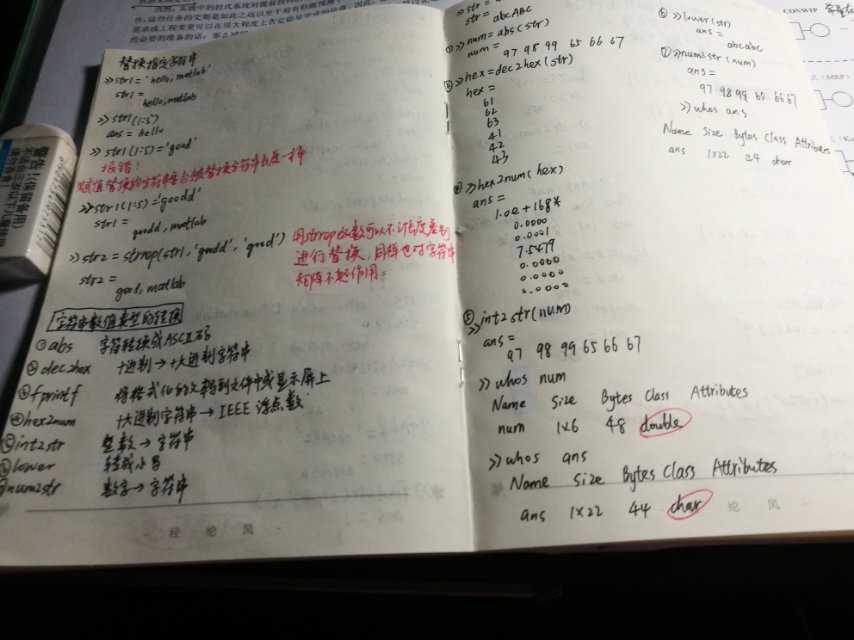 替换指定字符串
>>str1='hello,matlab'
str1=
hello,matlab
>>str1(1:5)
ans = hello
>>str1(1:5)='good'
报错!
赋值替换的字符串要与被替换字符串长度一样
>>str1(1:5)='goodd'
str1=
goodd,matlab
>>str2=strrep(str1,'goodd','good')
str2=
good,matlab
用strrep函数可以不计长度差别
进行替换,同样也对字符串
矩阵不起作用。
字符串数值类型的转换
①abs 字符转换成ASCII码
②dec2hex 十进制→十六进制字符串
③fprintf 将格式化的文本写到文件中或显示屏上
④hex2num 十六进制字符串→IEEE浮点数
⑤int2str 整数→字符串
⑥lower 转成小写
⑦num2str 数字→字符串
经 纶 风
str=
str=abcABC
①>>num=abs(str)
num=
97 98 99 65 66 67
②>>hex=dec2hex(str)
hex=
61
62
63
41
42
43
④>>hex2num(hex)
ans=
1.0e+168*
0.0000
0.0001
7.5479
0.0000
0.0000
0.0000
⑤>>int2str(num)
ans=
97 98 99 65 66 67
>>whos num
Name Size Bytes Class Attributes
num 1x6 48 double
>>whos ans
Name Size Bytes Class Attributes
ans 1x22 44 char
纶 风
⑥>>lower(str)
ans=
abcabc
⑦>>num2str(num)
ans=
97 98 99 65 66 67
>>whos ans
Name Size Bytes Class Attributes
ans 1x22 44 char
CONWIP